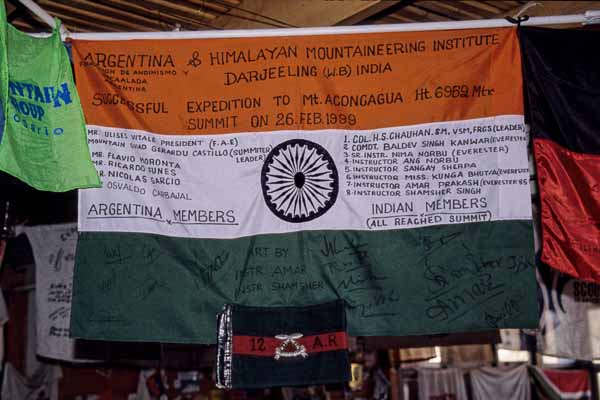 ARGENTINA & HIMALAYAN MOUNTAINEERING INSTITUTE
DARJEELING (W.B) INDIA
DE ANDINISMO Y
ESCALADA
ARGENTINA
SUCCESSFUL EXPEDITION TO MT. ACONGAGUA HT. 6962 Mtr
SUMMIT ON 26. FEB. 1999
MR. ULISES VITALE PRESIDENT (F.A.E)
MOUNTAIN GUAD GERARDU CASTILLO (SUMMITER)
LEADER)
MR. FLAVIO MORONTA
MR. RICARDO FUNES
MR. NICOLAS SARCIO
OSVALDO CARBAJAL
ARGENTINA MEMBERS
1. COL. H.S. CHAUHAN. S.M, VSM, FRGS (LEADER)
2. COMDT. BALDEV SINGH KANWAR (EVERESTER)
3. SR. INSTR. NIMA NORBU (EVERESTER)
4. INSTRUCTOR ANG NORBU
5. INSTRUCTOR SANGAY SHERPA
6. INSTRUCTOR MISS. KUNGA BHUTYA (EVERESTER)
7. INSTRUCTOR AMAR PRAKASH (EVERESTER 85
8. INSTRUCTOR SHAMSHER SINGH
INDIAN MEMBERS
(ALL REACHED SUMMIT)
ART BY
INSTR AMAR
INSTR SHAMSHER
Amar
12 A R
NTAIN
OUP
osario
SCOU